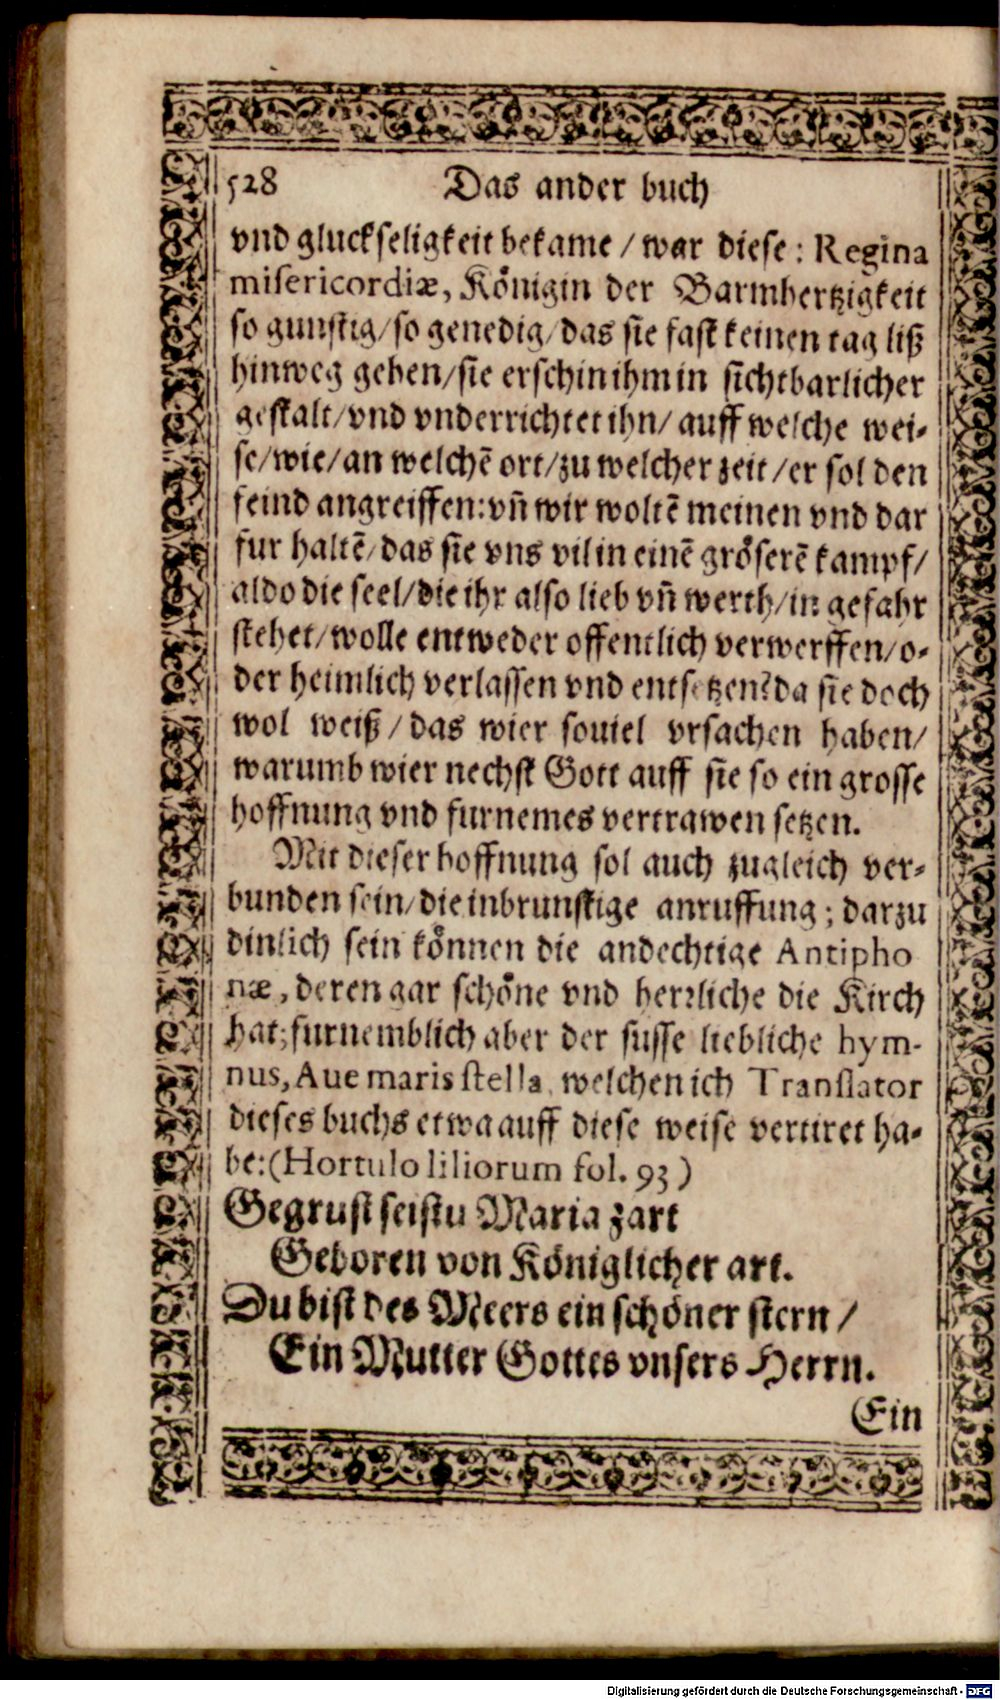 528 Das ander buch
vnd gluckseligkeit bekame / war diese: Regina
misericordiæ, Königin der Barmhertzigkeit
so gunstig/so genedig/das sie fast keinen tag liß
hinweg gehen/sie erschin ihm in sichtbarlicher
gestalt/vnd vnderrichtet ihn/ auff welche wei-
se/wie/an welchē ort/zu welcher zeit/er sol den
feind angreiffen:vn̄ wir woltē meinen vnd dar
fur haltē/das sie vns vil in einē gröserē kampf/
aldo die seel/die ihr also lieb vn̄ werth/in gefahr
stehet/wolle entweder offentlich verwerffen/o-
der heimlich verlassen vnd entsetzen?da sie doch
wol weiß/das wier souiel vrsachen haben/
warumb wier nechst Gott auff sie so ein grosse
hoffnung vnd furnemes vertrawen setzen.
Mit dieser hoffnung sol auch zugleich ver-
bunden sein/die inbrunstige anruffung; darzu
dinlich sein können die andechtige Antipho
næ, deren gar schöne vnd herrliche die Kirch
hat;furnemblich aber der susse liebliche hym-
nus, Aue maris stella, welchen ich Translator
dieses buchs etwa auff diese weise vertiret ha-
be:(Hortulo liliorum fol. 93)
Gegrust seistu Maria zart
Geboren von Königlicher art.
Du bist des Meers ein schöner stern /
Ein Mutter Gottes vnsers Herrn.
Ein
Digitalisierung gefördert durch die Deutsche Forschungsgemeinschaft - DFG